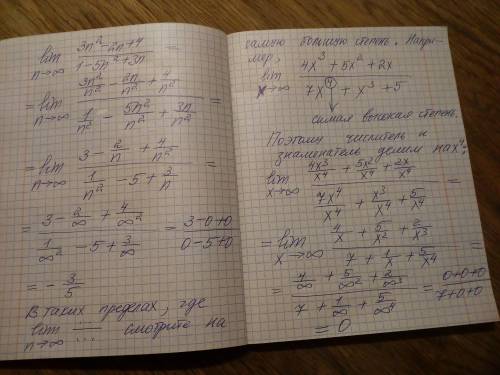 lim n→∞ (3n² - 2n + 4) / (1 - 5n² + 3n) =
= lim n→∞ (3n²/n² - 2n/n² + 4/n²) / (1/n² - 5n²/n² + 3n/n²) =
= lim n→∞ (3 - 2/n + 4/n²) / (1/n² - 5 + 3/n) =
= (3 - 2/∞ + 4/∞²) / (1/∞² - 5 + 3/∞) = (3-0+0) / (0-5+0)
= - 3/5
В таких пределах, где
lim n→∞ ---- / ... смотрите на
самую большую степень. Напри-
мер,
lim x→∞ (4x³ + 5x² + 2x) / (7x⁴ + x³ + 5)
самая высокая степень.
Поэтому числитель и
знаменатель делим на x⁴:
lim x→∞ (4x³/x⁴ + 5x²/x⁴ + 2x/x⁴) / (7x⁴/x⁴ + x³/x⁴ + 5/x⁴) =
= lim x→∞ (4/x + 5/x² + 2/x³) / (7 + 1/x + 5/x⁴) =
= (4/∞ + 5/∞² + 2/∞³) / (7 + 1/∞ + 5/∞⁴) = (0+0+0) / (7+0+0)
= 0